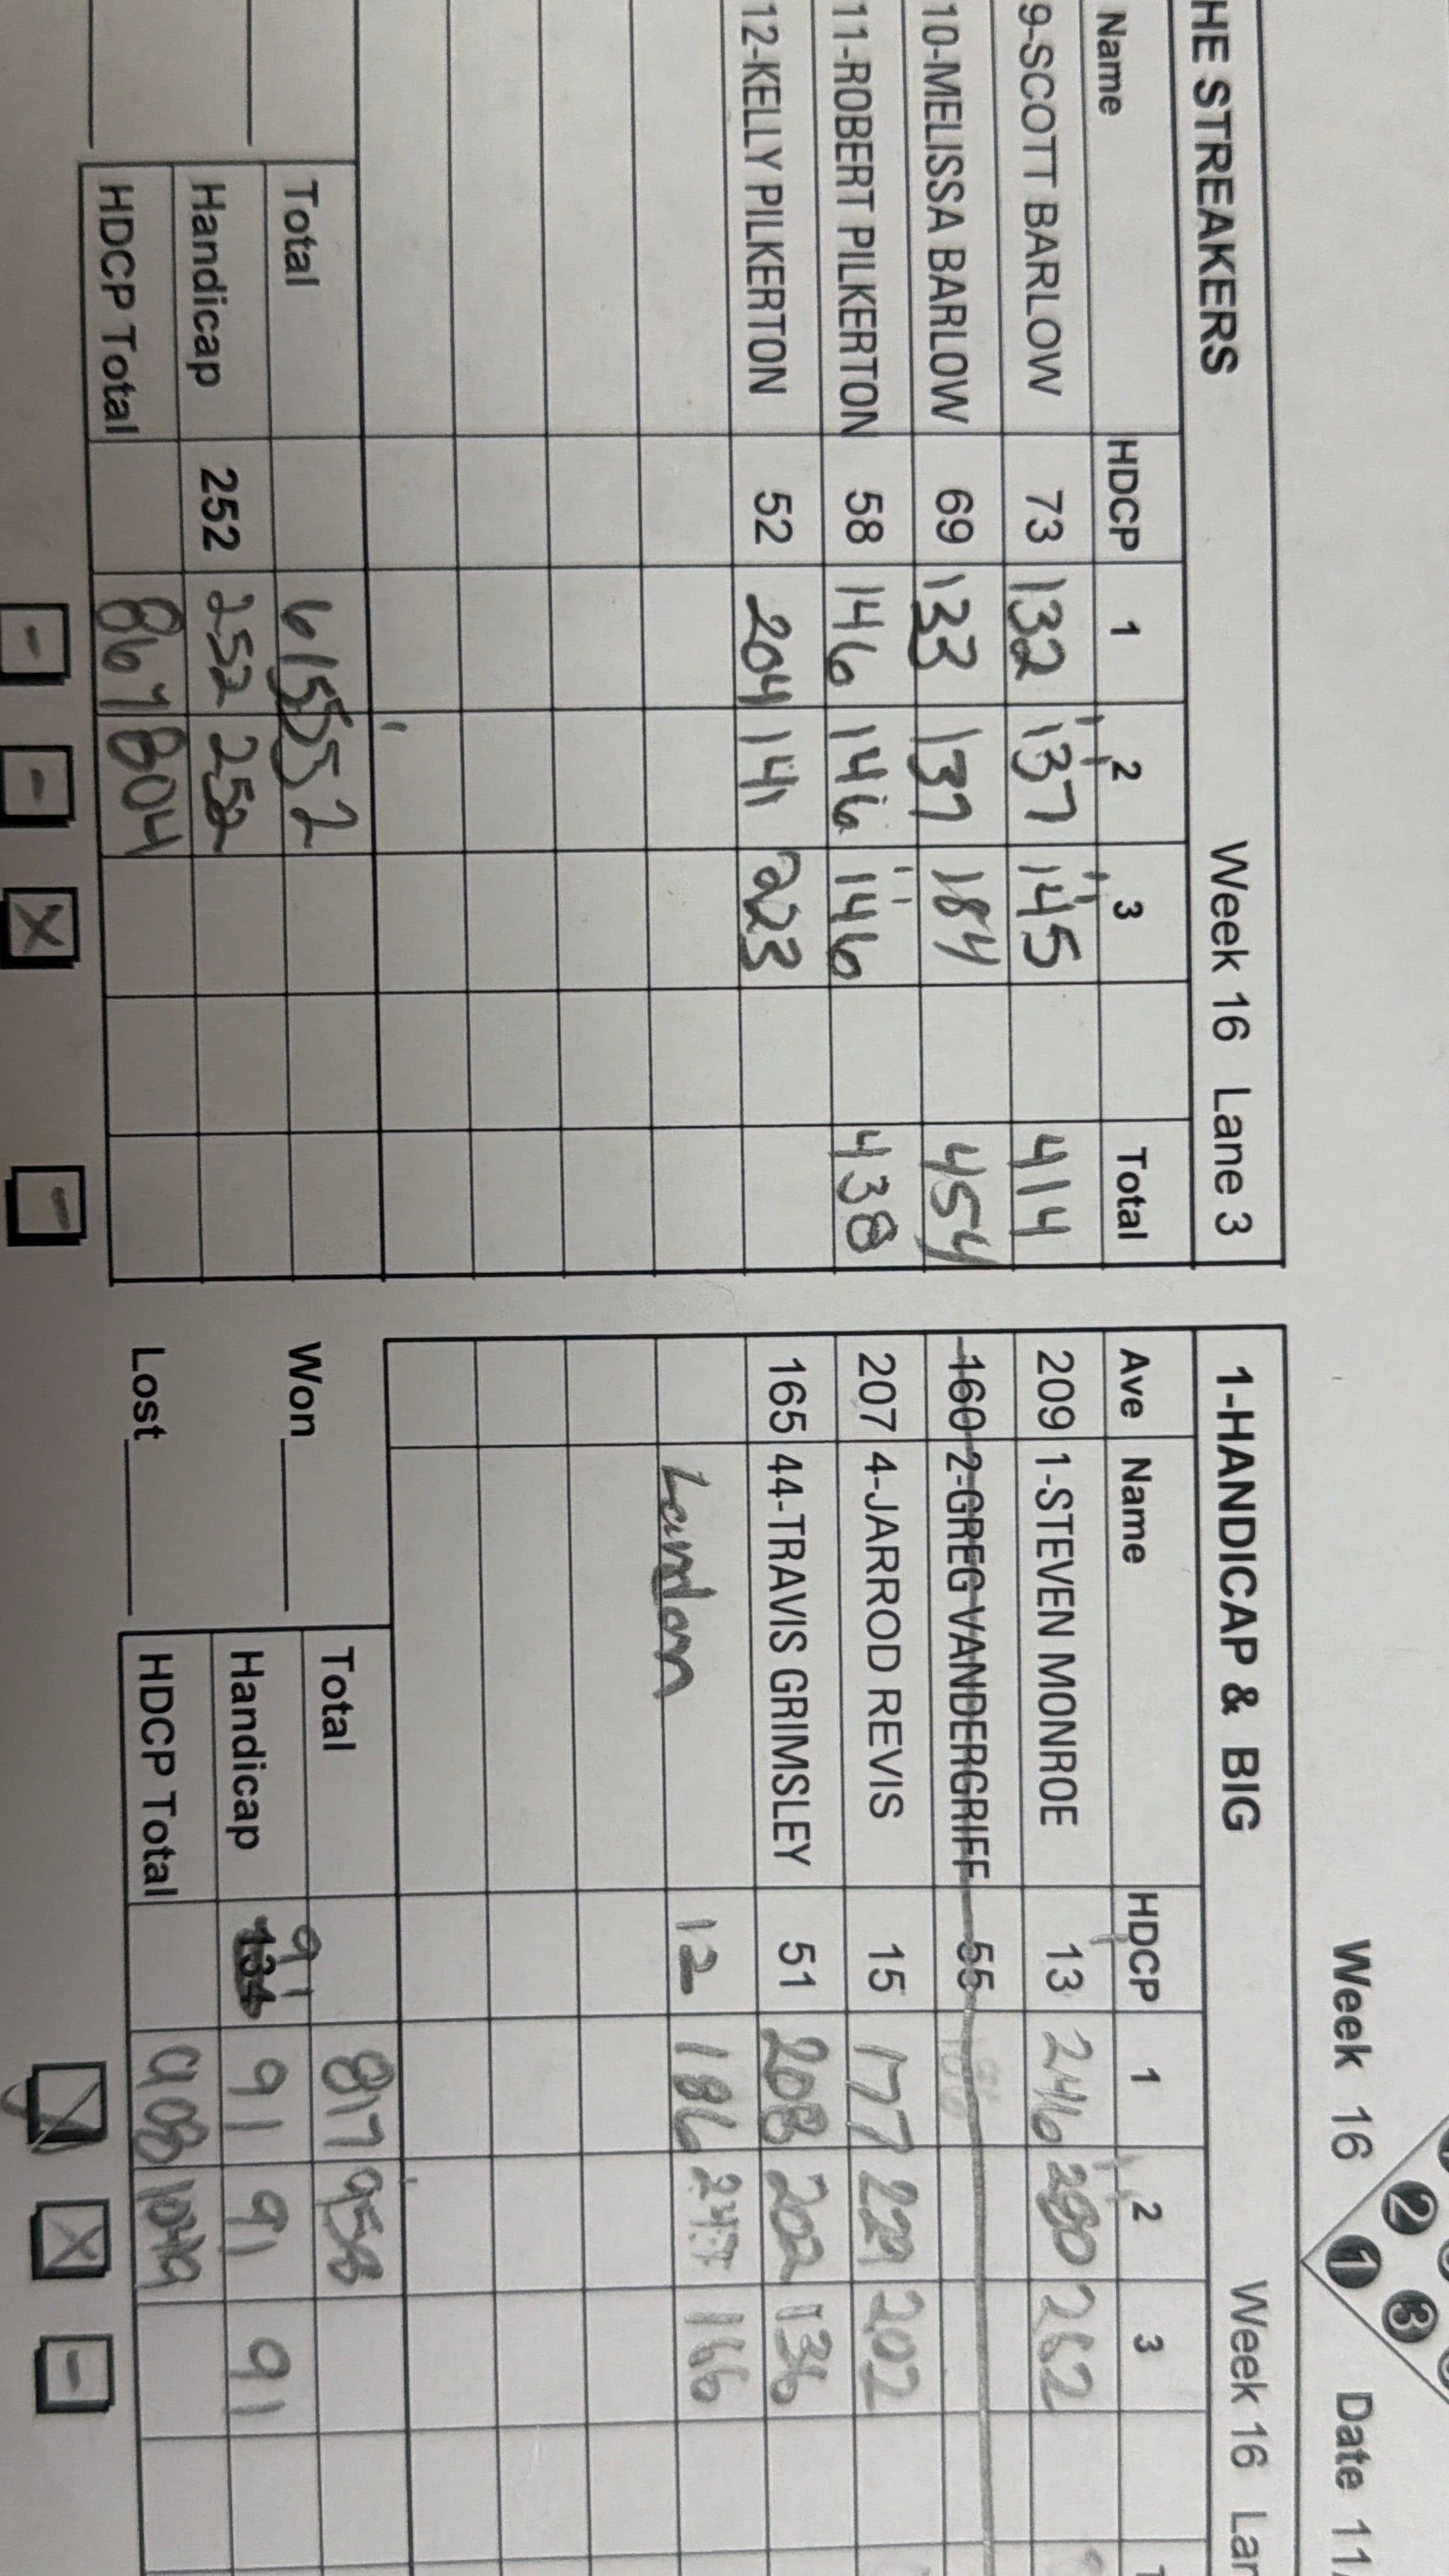 Week 16 Date 11
2 1 3
HE STREAKERS Week 16 Lane 3
Name HDCP 1 2 3 Total
9-SCOTT BARLOW 73 132 137 145 414
10-MELISSA BARLOW 69 133 137 184 454
11-ROBERT PILKERTON 58 146 146 146 438
12-KELLY PILKERTON 52 204 141 223
Total 615 552
Handicap 252 252 252
HDCP Total 867 804
- - X -
1-HANDICAP & BIG Week 16
Ave Name HDCP 1 2 3
209 1-STEVEN MONROE 13 246 280 262
160 2-GREG VANDERGRIFF 55
207 4-JARROD REVIS 15 177 229 202
165 44-TRAVIS GRIMSLEY 51 208 202 136
Landon 12 186 247 166
Won Total 817 958
Handicap 134 91 91 91 91
Lost HDCP Total 908 1049
X X -